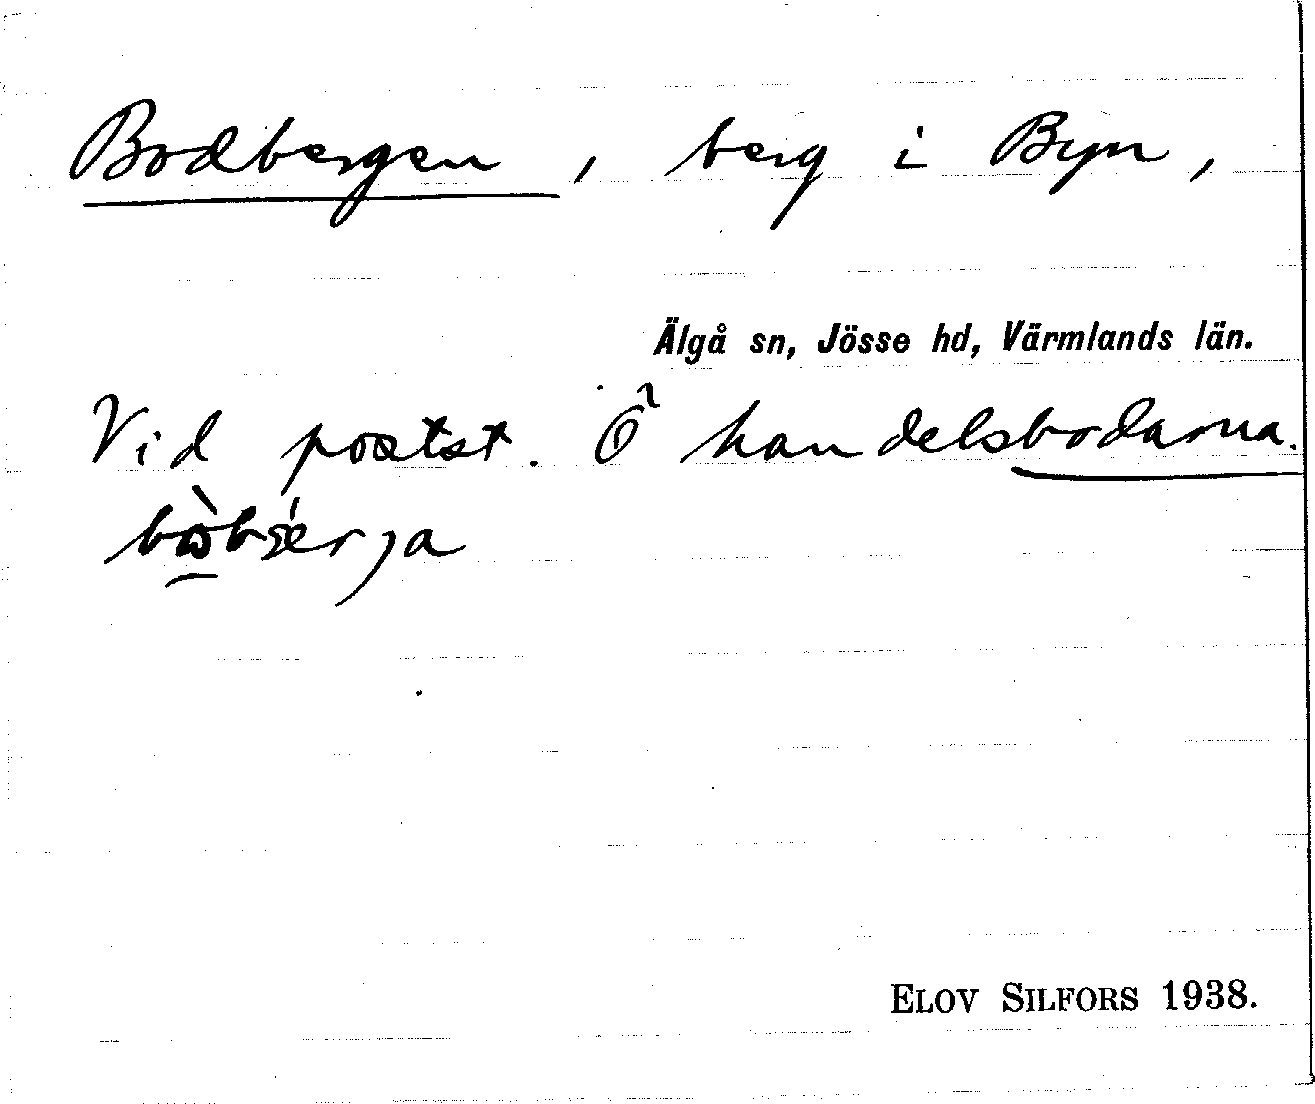 Bodbergen, berg i Byn,
Älgå sn, Jösse hd, Värmlands län.
Vid postst. O handelsbodarna.
ELOV SILFORS 1938.